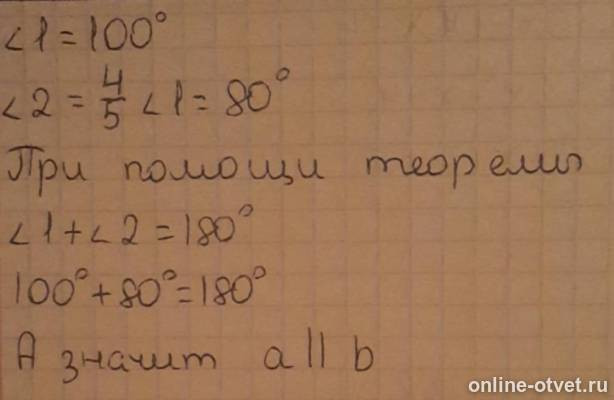 ∠1=100°
∠2=4/5 ∠1=80°
При помощи теоремы
∠1+∠2=180°
100°+80°=180°
А значит a || b
online-otvet.ru